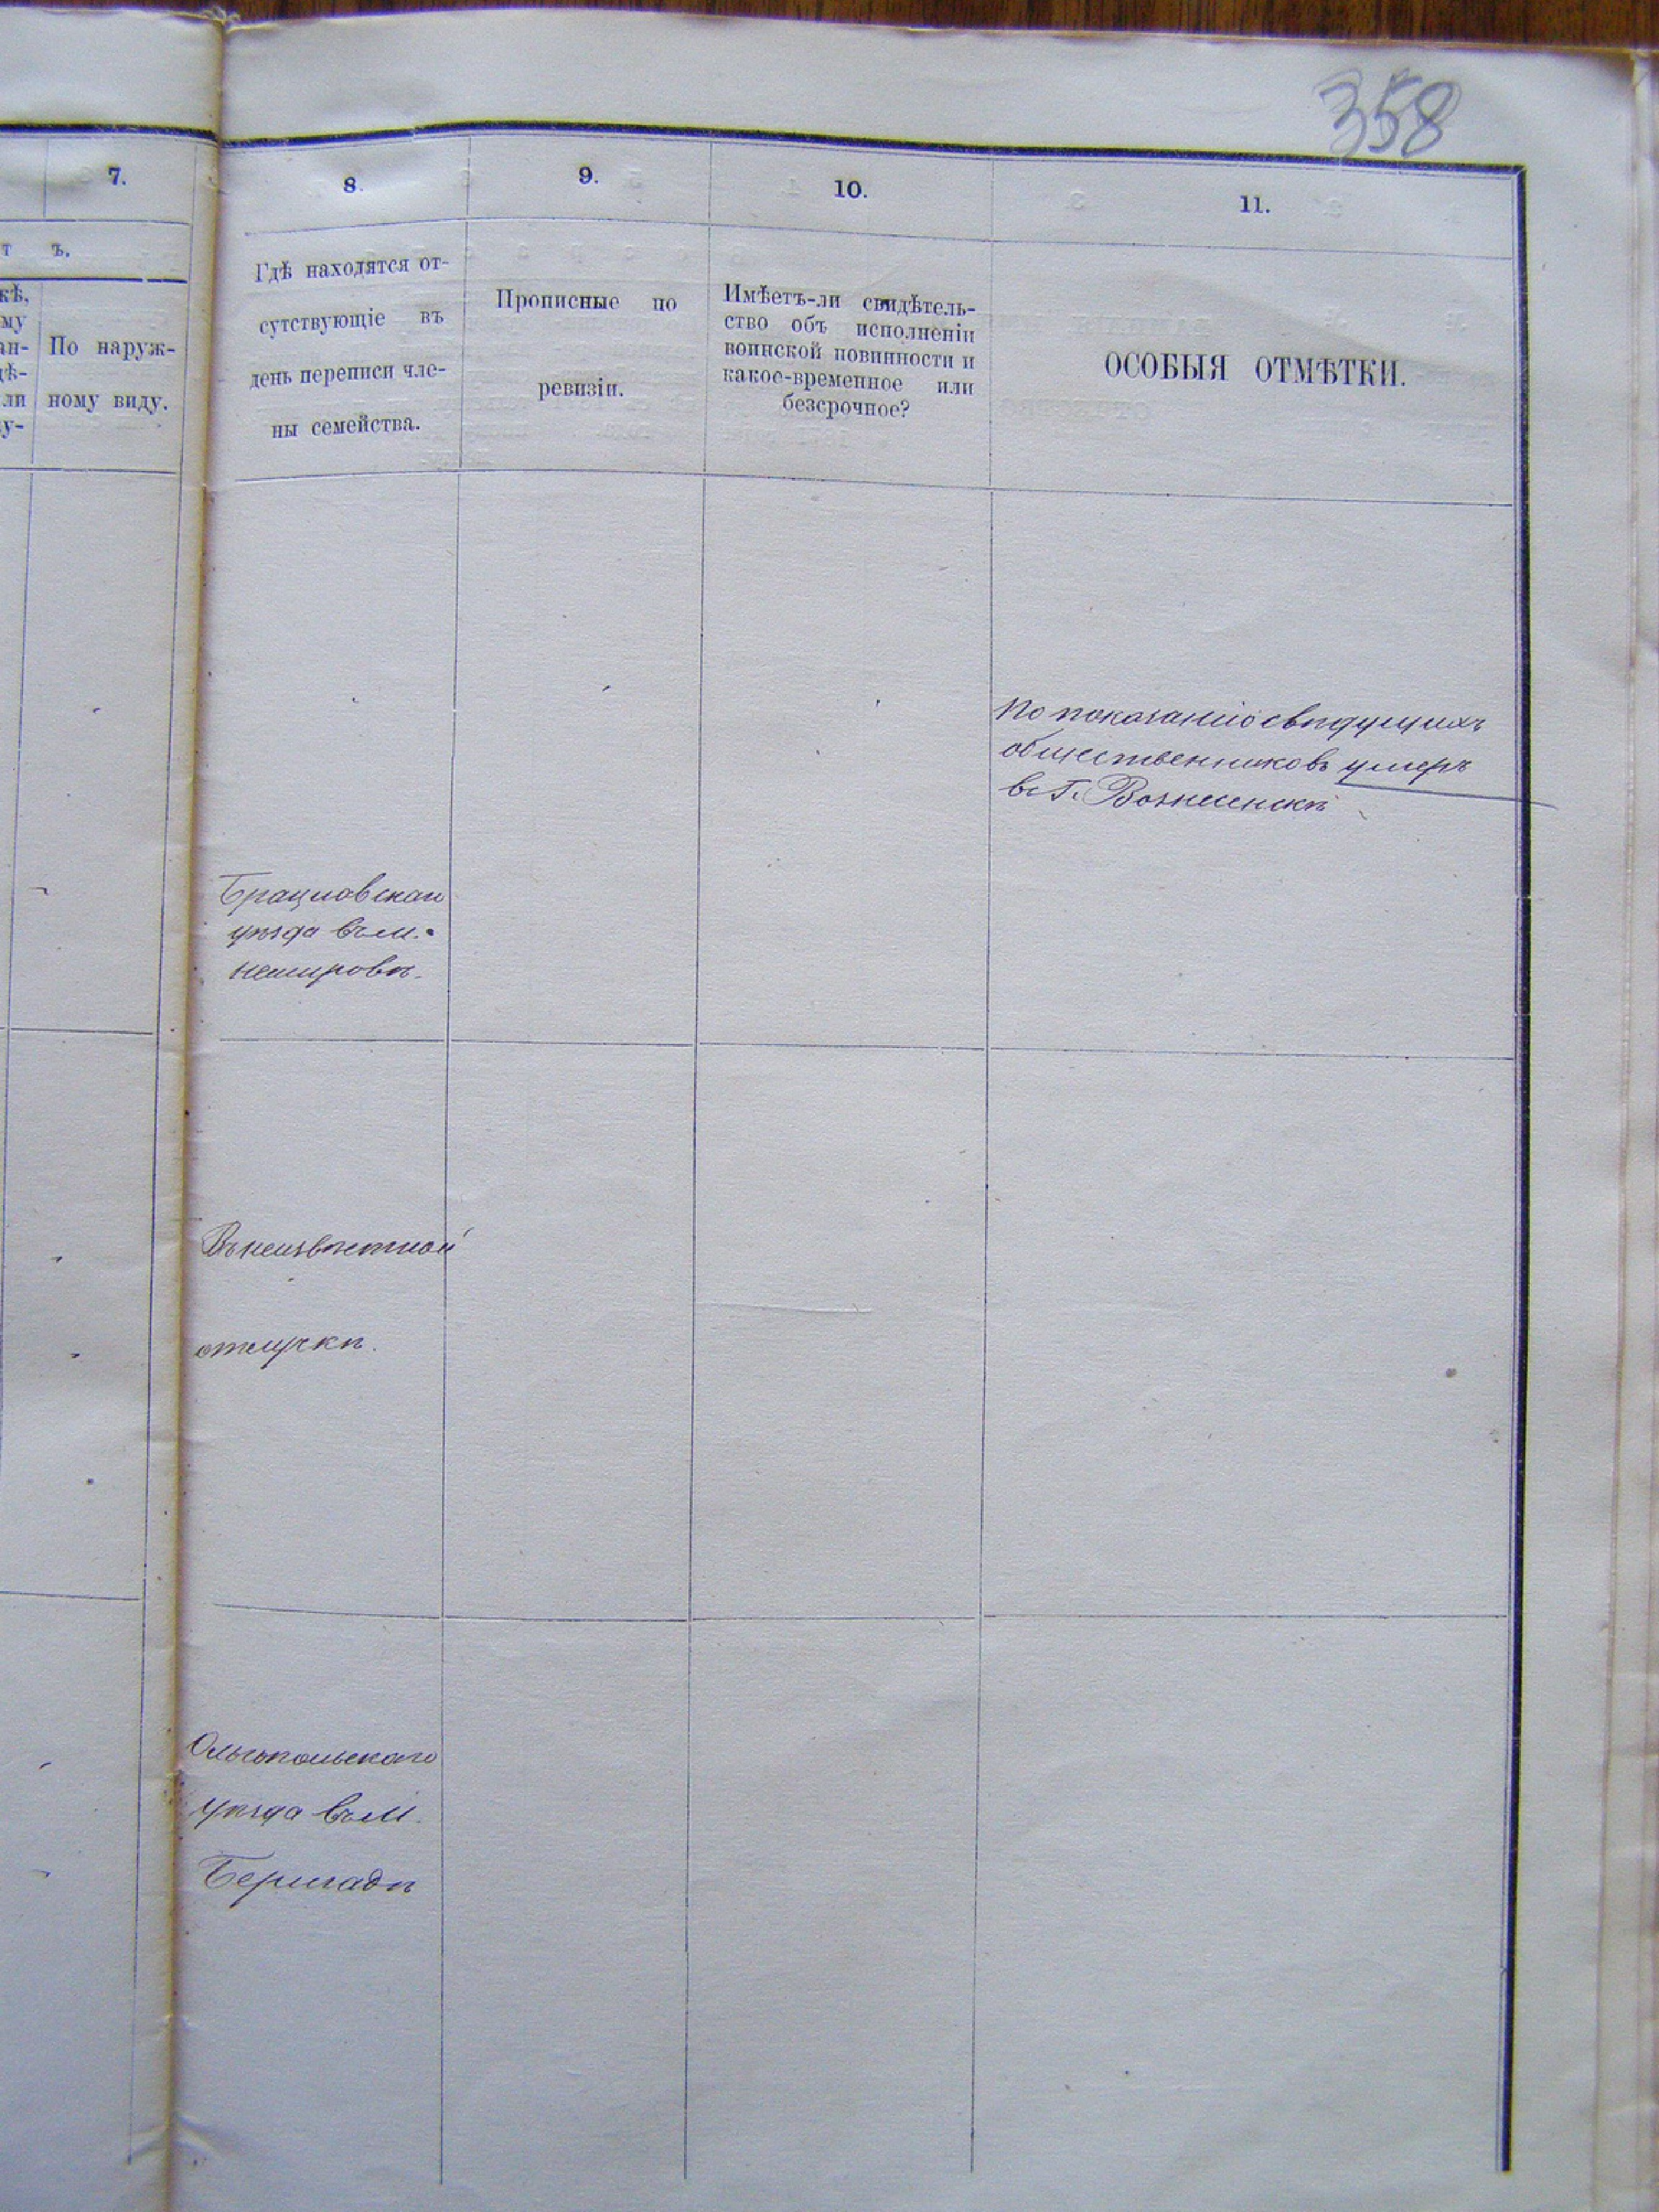 358
7.
8.
9.
10.
11.
т ъ.
кѣ,
му
ан-
дѣ-
ли
у-
По наруж-
ному виду.
Гдѣ находятся от-
сутствующіе въ
день переписи чле-
ны семейства.
Прописные по
ревизіи.
Имѣетъ-ли свидѣтель-
ство объ исполненіи
воинской повинности и
какое-временное или
безсрочное?
ОСОБЫЯ ОТМѢТКИ.
По показанію свѣдущихъ
общественниковъ умеръ
въ Г. Вознесенскѣ
Брацлавскаго
уѣзда въ м.
Немировѣ.
Въ неизвѣстной
отлучкѣ.
Ольгопольскаго
уѣзда въ м.
Бершадѣ